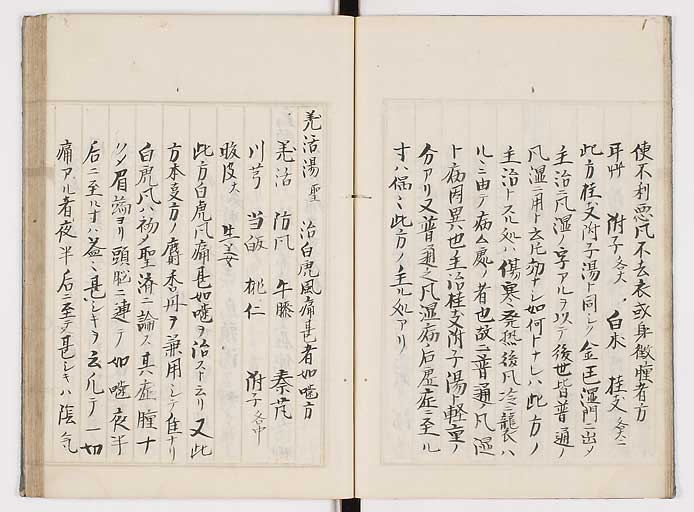 便不利悪風不去衣或身微腫者方
甘艸 附子各大 白朮 桂支各大二
此方桂支附子湯ト同シク金匱濕門ニ出ツ
主治ニ風湿ノ字アルヲ以テ後世皆普通ノ
風湿ニ用ト云氏効ナシ如何トナレハ此方ノ
主治トスル処ハ傷寒発熱後風冷ニ襲ハ
ルヽニ由テ病ム處ノ者也故ニ普通ノ風湿
ト病因異也主治桂支附子湯ト軽重ノ
分アリ又普通之風湿病ノ后虚症ニ至ル
寸ハ偏ニ此方ノ主ル処アリ
羌活湯 聖 治白虎風痛甚者如噛方
羌活 防風 牛膝 秦艽
川芎 当皈 桃仁 附子各中
皮大 生姜
此方白虎風痛甚如噛ヲ治スト云リ 又此
方本支方ノ麝香丹ヲ兼用シテ佳ナリ
白虎風ハ初メ聖済ニ論ス其症腫ナ
クメ眉端ヨリ頭脳ニ連テ如噛夜半
后ニ至ル寸ハ益ミ甚シキヲ云凡テ一切
痛アル者夜半后ニ至テ甚シキハ陰気